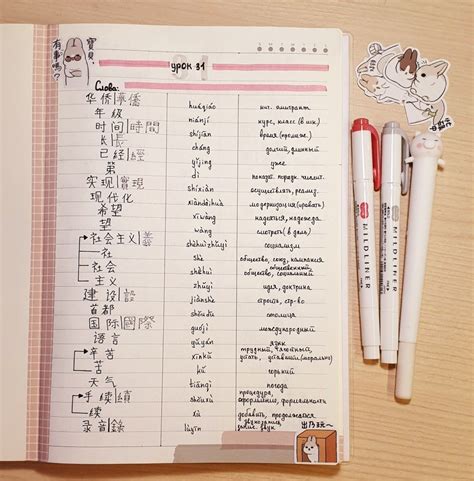 寶貝,
有事嗎?
урок 31
Слова:
华侨|華僑 huáqiáo кит. эмигрант
年级 niánjí курс, класс (в шк.)
时间|時間 shíjiān время (продолж.)
长|長 cháng долгий, длинный
已经|經 yǐjīng уже
第 dì показат. порядк. числит.
实现|實現 shíxiàn осуществлять, реализ.
现代化 xiàndàihuà модернизация(ировать)
希望 xīwàng надеяться, надежда
望 wàng смотреть (в даль)
社会主义|義 shèhuìzhǔyì социализм
社 shè общество, союз, компания
社会 shèhuì общество, социальный
общественный
主义 zhǔyì идея, доктрина
建设|設 jiànshè строить, стр-во
首都 shǒudū столица
国际|國際 guójì международный
语言 yǔyán язык
辛苦 xīnkǔ трудный, тягостный,
苦 kǔ горький
天气 tiānqì погода
手续|續 shǒuxù процедура,
оформление, формальность
续 xù добавить, продолжаться
录音|錄 lùyīn звукозапись
出乃玩~
MILDLINER
MILDLINER